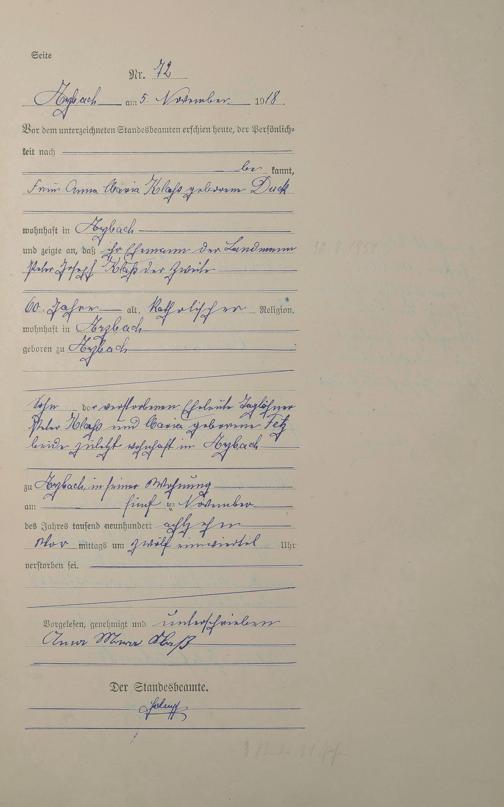 Seite
Nr. 72
Arzbach am 5. November 1918.
Vor dem unterzeichneten Standesbeamten erschien heute, der Persönlich-
keit nach
be kannt,
Frau Anna Maria Klaß geborene Duck
wohnhaft in Arzbach
und zeigte an, daß ihr Ehemann der Landmann
Peter Josef Klaß der Zweite
60 Jahre alt, katholischer Religion,
wohnhaft in Arzbach
geboren zu Arzbach
Sohn der verstorbenen Eheleute Taglöhner
Peter Klaß und Maria geborene
beide zuletzt wohnhaft in Arzbach
zu Arzbach, in seiner Wohnung
am fünf ten November
des Jahres tausend neunhundert achtzehn
Vor mittags um zwölf einviertel Uhr
verstorben sei.
Vorgelesen, genehmigt und unterschrieben
Anna Maria Klaß
Der Standesbeamte.